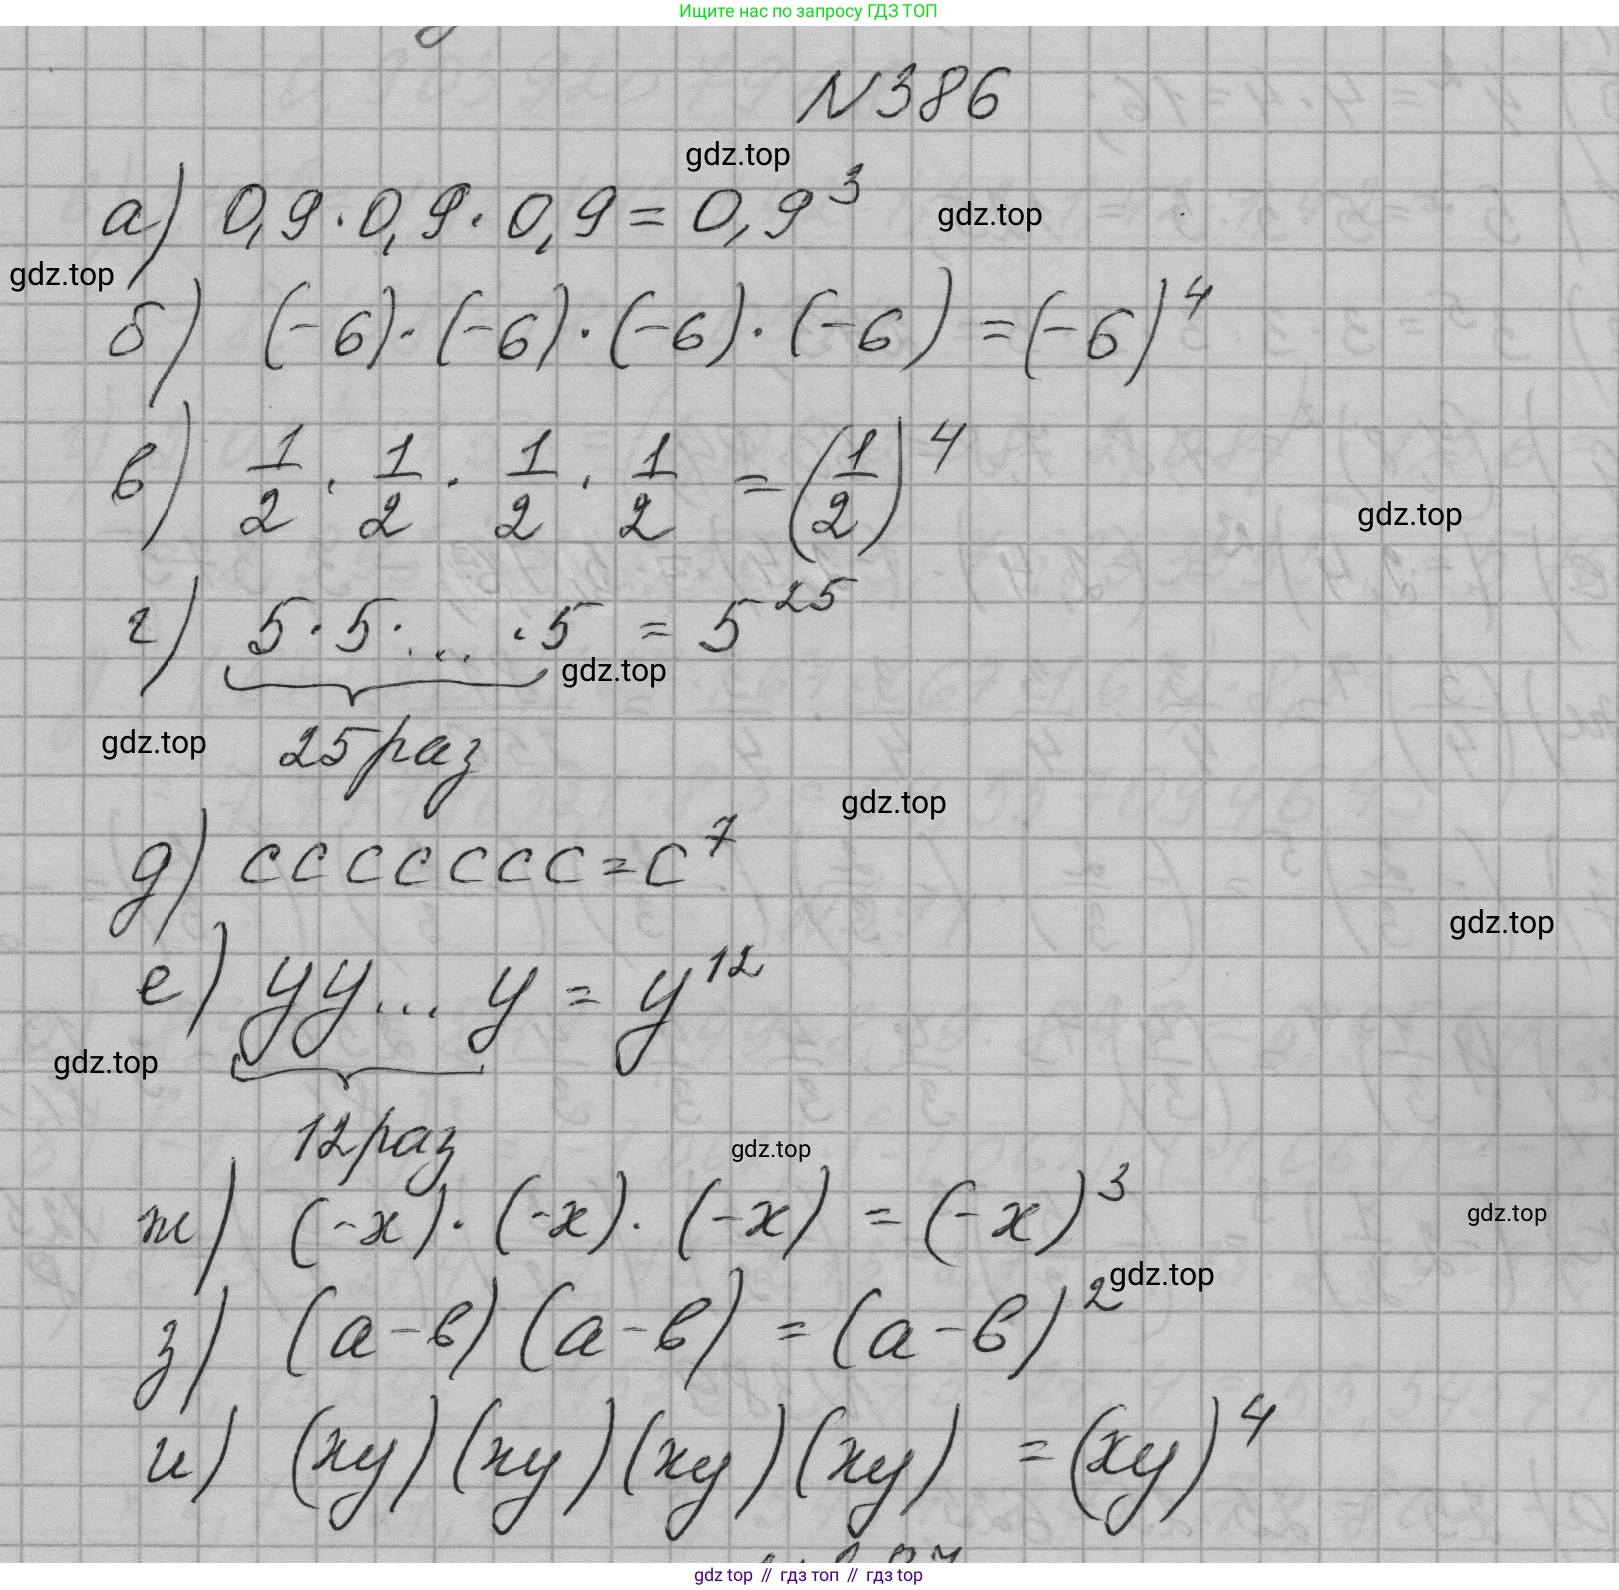 Ищите нас по запросу ГДЗ ТОП
N386
gdz.top
а) 0,9·0,9·0,9=0,9³
gdz.top
gdz.top
б) (-6)·(-6)·(-6)·(-6)=(-6)⁴
в) 1/2·1/2·1/2·1/2=(1/2)⁴
gdz.top
г) 5·5·...·5=5²⁵
gdz.top
gdz.top
25 раз
gdz.top
д) ccccccc=c⁷
gdz.top
е) yy...y=y¹²
gdz.top
12 раз
gdz.top
ж) (-x)·(-x)·(-x)=(-x)³
gdz.top
gdz.top
з) (a-в)(a-в)=(a-в)²
и) (xy)(xy)(xy)(xy)=(xy)⁴
gdz top // гдз топ // gdz top